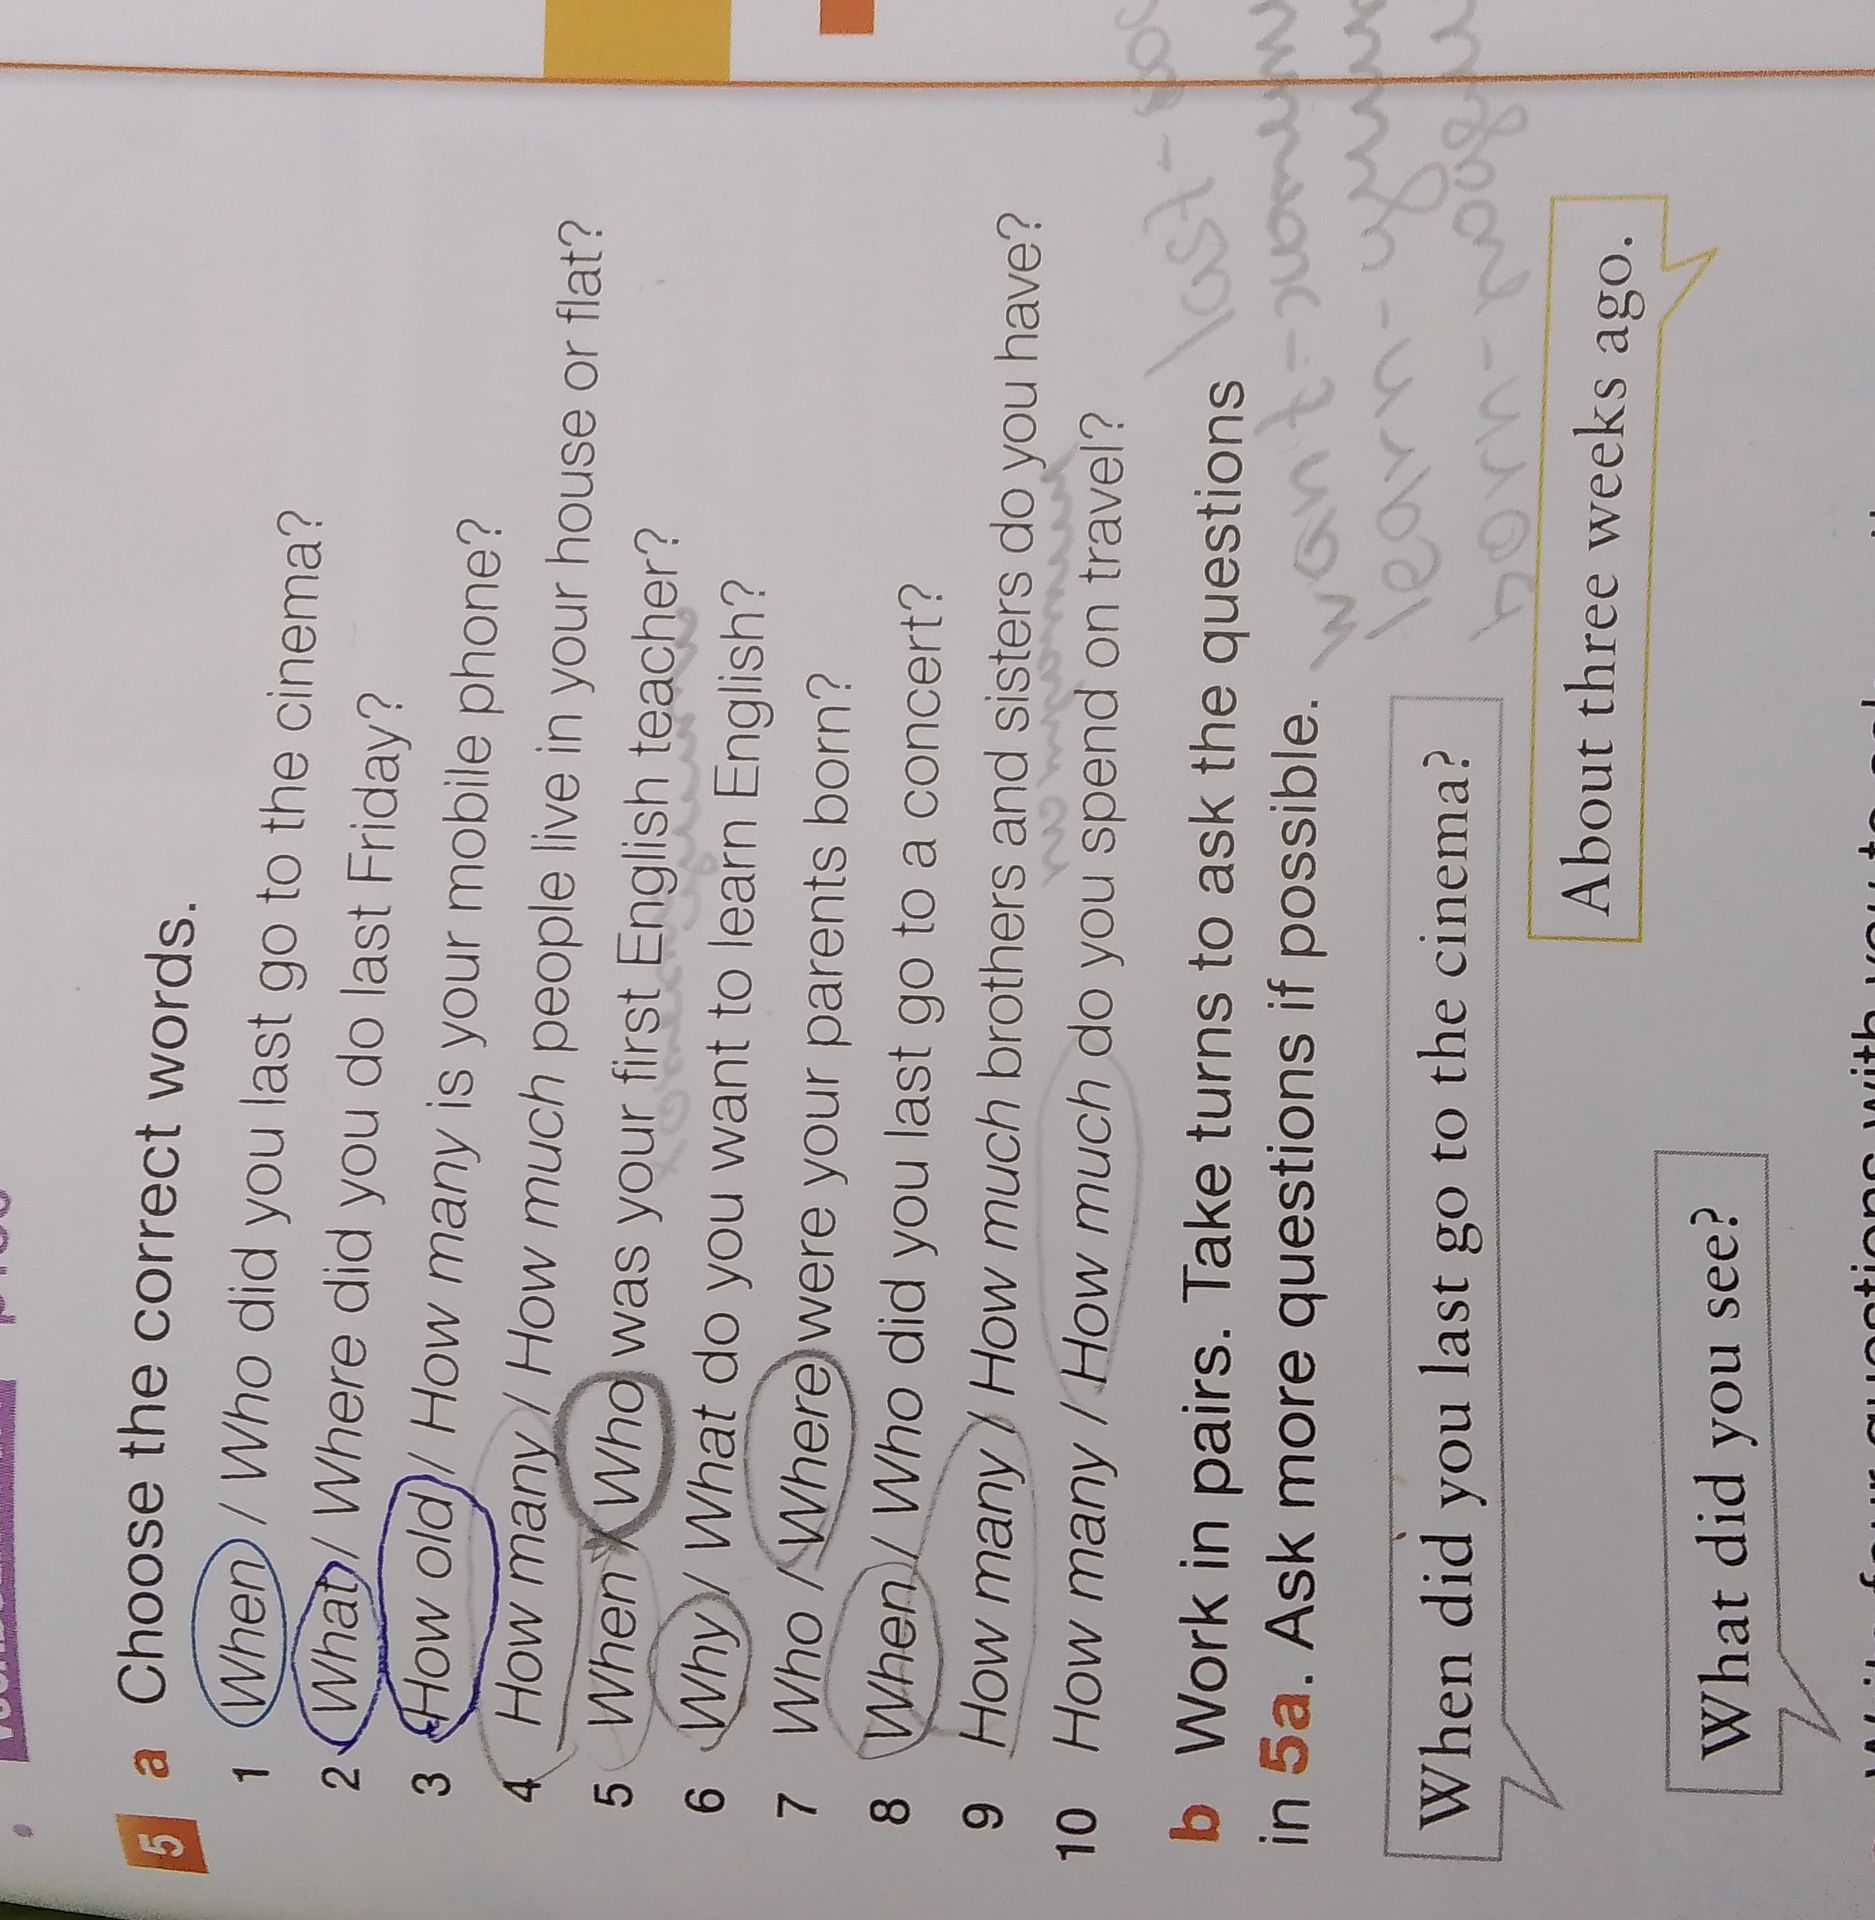 5 a Choose the correct words.
1 When / Who did you last go to the cinema?
2 What / Where did you do last Friday?
3 How old / How many is your mobile phone?
4 How many / How much people live in your house or flat?
5 When / Who was your first English teacher?
6 Why / What do you want to learn English?
7 Who / Where were your parents born?
8 When / Who did you last go to a concert?
9 How many / How much brothers and sisters do you have?
10 How many / How much do you spend on travel?
b Work in pairs. Take turns to ask the questions
in 5a. Ask more questions if possible.
When did you last go to the cinema?
About three weeks ago.
What did you see?